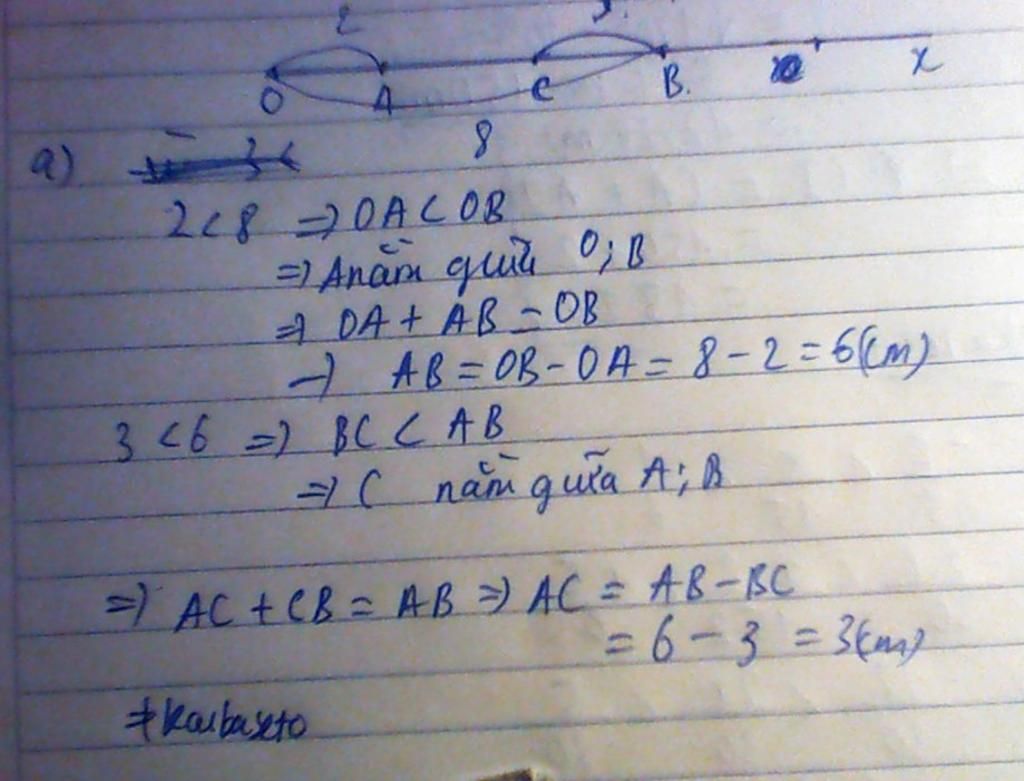 2 3
O A C B x
8
a)
2 < 8 => OA < OB
=> A nằm giữa O; B
=> OA + AB = OB
=> AB = OB - OA = 8 - 2 = 6 (cm)
3 < 6 => BC < AB
=> C nằm giữa A; B
=> AC + CB = AB => AC = AB - BC
= 6 - 3 = 3 (cm)